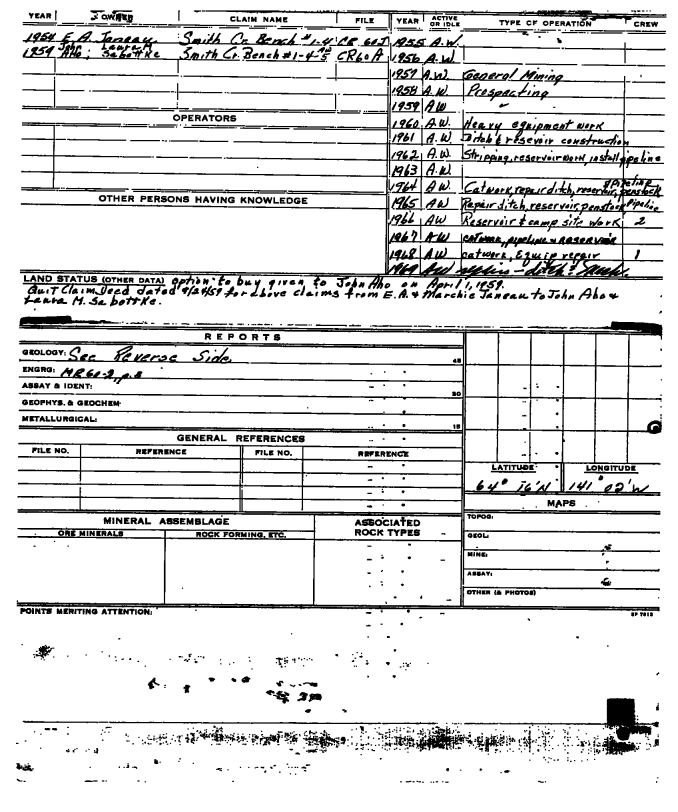 YEAR OWNER CLAIM NAME FILE YEAR ACTIVE OR IDLE TYPE OF OPERATION CREW
1954 E. A. Janeau Smith Cr. Bench #1-4 CR 60J 1955 A.W.
1959 John Aho; Laura M. Sabottke Smith Cr. Bench #1-4-5 CR60A 1956 A.W.
1957 A.W. General Mining
1958 A.W. Prospecting
1959 AW "
OPERATORS 1960 A.W. Heavy equipment work
1961 A.W. Ditch & resevoir construction
1962 A.W. Stripping, reservoir work, install pipeline
1963 A.W.
1964 A.W. Catwork, repair ditch, reservoir, pipeline, penstock
OTHER PERSONS HAVING KNOWLEDGE 1965 AW Repair ditch, reservoir, penstock, pipeline
1966 AW Reservoir & camp site work 2
1967 AW catwork, pipeline & reservoir
1968 AW catwork, Equip repair 1
1969 AW
LAND STATUS (OTHER DATA) option to buy given to John Aho on April 1, 1959.
Quit Claim Deed dated 9/24/59 for above claims from E.A. & Marchie Janeau to John Aho &
Laura M. Sabottke.
REPORTS
GEOLOGY: See Reverse Side. 45
ENGRG: MR 60-2, p.8
ASSAY & IDENT: 30
GEOPHYS. & GEOCHEM:
METALLURGICAL: 15
GENERAL REFERENCES
FILE NO. REFERENCE FILE NO. REFERENCE
LATITUDE LONGITUDE
64° 16'N 141° 02'W
MAPS
MINERAL ASSEMBLAGE ASSOCIATED ROCK TYPES
ORE MINERALS ROCK FORMING, ETC.
TOPOG:
GEOL:
MINE:
ASSAY:
OTHER (& PHOTOS)
POINTS MERITING ATTENTION: SF 7812